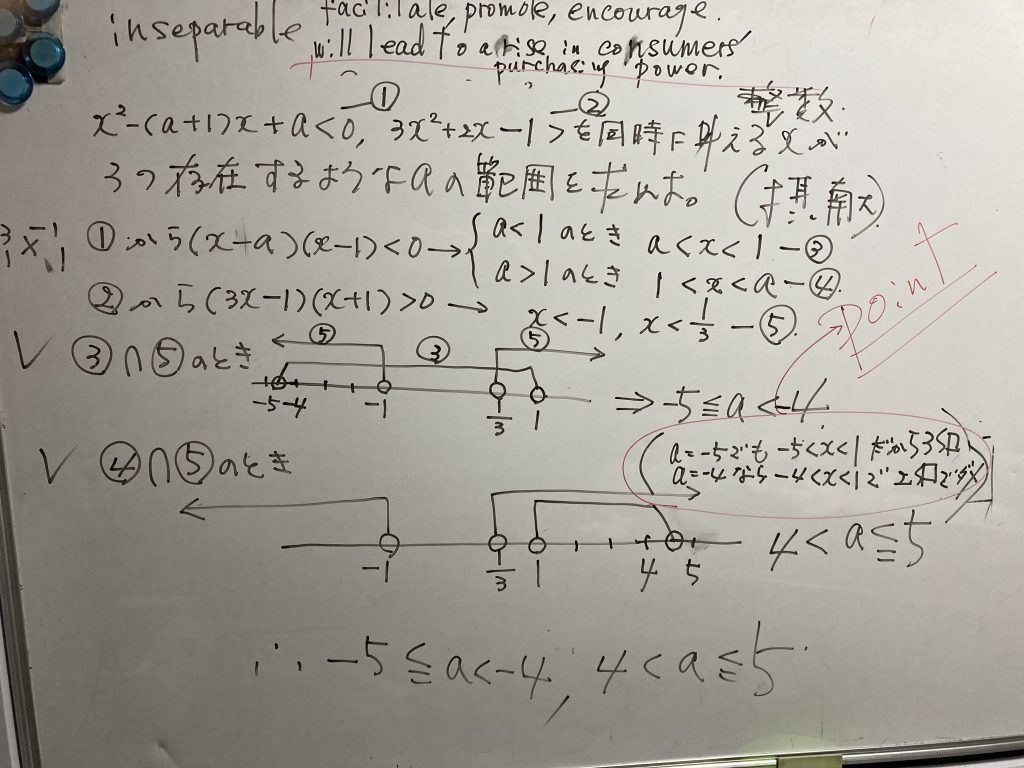 inseparable facilitate, promote, encourage.
will lead to a rise in consumers'
purchasing power.
① ② 整数
x²-(a+1)x+a<0, 3x²+2x-1>0を同時に叶えるxが
3つ存在するようなaの範囲を求めよ。(摂南大)
3 -1
1 1
①から(x-a)(x-1)<0→{a<1のとき a<x<1-③
a>1のとき 1<x<a-④
②から(3x-1)(x+1)>0→ x<-1, x<1/3-⑤
Point
∨ ③∩⑤のとき ⑤ ③ ⑤
-5 -4 -1 1/3 1 ⇒-5≦a<-4
(a=-5でも -5<x<1だから3個
a=-4なら-4<x<1で2個でダメ)
∨ ④∩⑤のとき
-1 1/3 1 4 5 4<a≦5
∴ -5≦a<-4, 4<a≦5